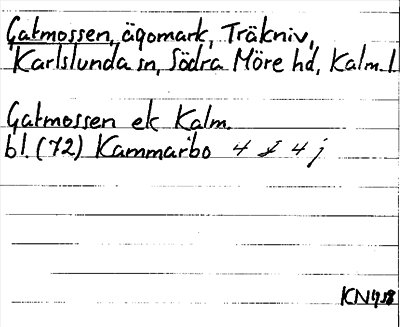 Gatmossen, ägomark, Träkniv,
Karlslunda sn, Södra Möre hd, Kalm. l.
Gatmossen ek Kalm.
bl. (72) Kammarbo 4 4 j